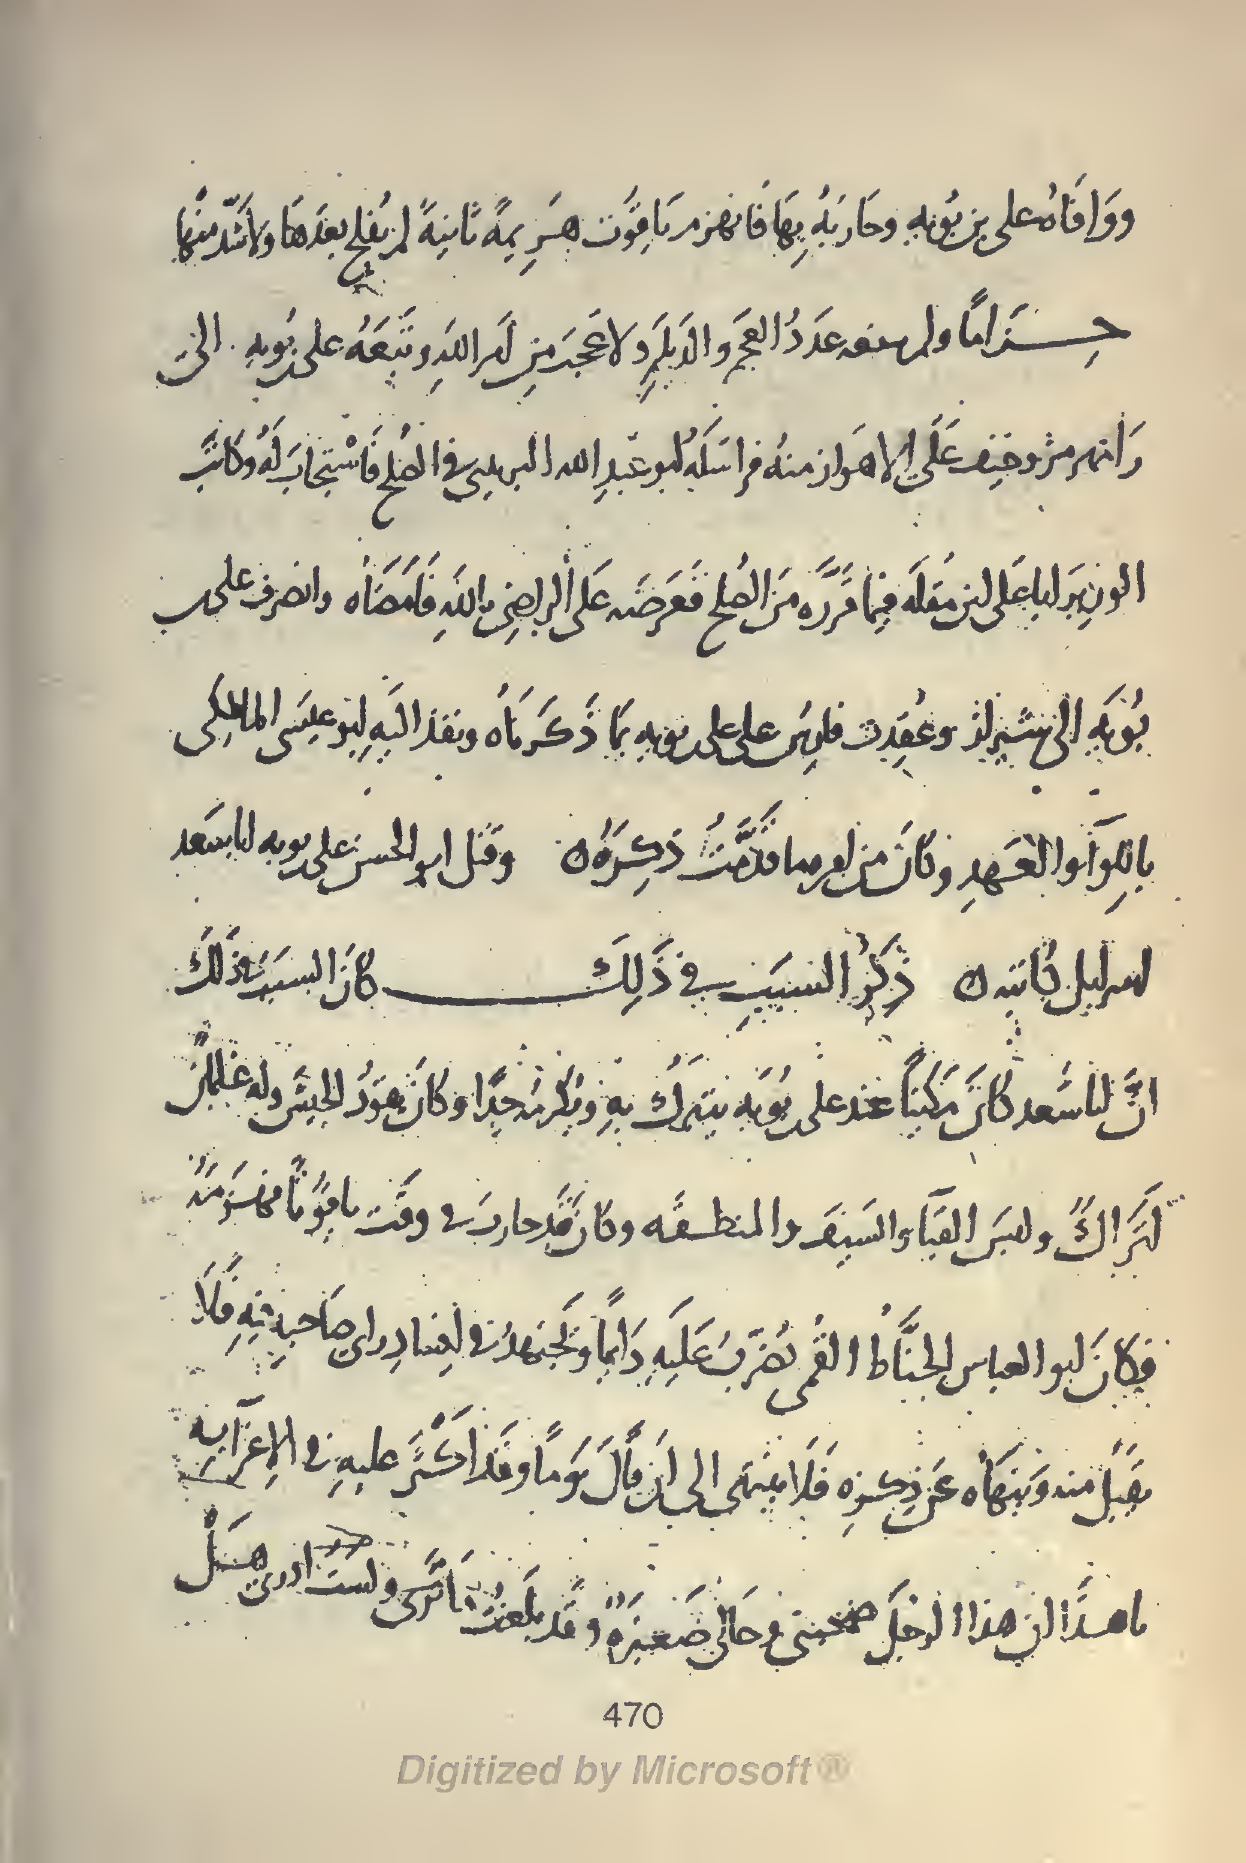 ووَافَاهُ على بن بُويَهِ وحَارَبَهُ بِهَا فَانهزم يَاقوَت هَزِيمَةً ثانيَةً لم يُفلح بعدَهَا ولا شَدّ منهَا
حِزَامًا ولم ينفعه عَدَدُ العجَم والدَيلَمِ ولا عَجَبَ مِن أمر اللهِ وتَبَعَهُ على بن بُويه الى
رَامهرمز وخِيفَ عَلَى الاهوَاز منهُ فراسَلَهُ ابو عَبدِ الله البريدى فى الصُلح فَاسْتجَابَ لَهُ وكاتَبَ
الوزِيرَ ابا عَلى ابن مُقلَه فيمَا قَرَّرَه مَن الصُلح فَعَرَضَه عَلَى الراضِى باللهِ فَأَمضَاه وانصَرف على بن
بُوَيَهِ الى شيرَاز وعُقِدت فارِسُ على على بن بُويه بمَا ذَكَرَنَاُه ونفذ اليَهِ ابو عيسَى المالكى
باللِوَآءِ والعَهدِ وكانَ من امرهما قدّمتُ ذكِرَهُ وقتل ابو الحسن على بن بويه ابا سَعد
اسرايل كاتبَه ذِكرُ السَبَبِ فى ذَلِكَ كانَ السبَبَ فى ذلكَ
انَّ ابا سَعد كانَ مَكينًا عند على بن بُوَيَه يتبرّكُ بهِ ويُكرمُه جِدًا وكانَ يقوَدُ الجيشَ وله غلمانٌ
اتَراكٌ ولبسَ القبَاءَ والسَيفَ والمنطقَه وكانَ قَد حاربَ فى وقَت ياقوتًا فهزَمَه
فكَانَ ابو العباس الحنَّاطُ القُمى يُضَرِّبُ عَلَيَهِ دَايمًا ويجتهدُ فى افسَادِ راى صَاحبِهِ فيهِ فَلَا
يقبَلُ منه وَيَنهَاهُ عَن ذِكرِه فَلَا ينتهى الى ان قالَ يَومًا وقَد أكثَرَ عليهِ فى الاِغرَآءِ بِهِ
يا هذَا ان هذا الرجُلَ صحبنى وحَالى صَغيرَةٌ وقد بلَغتُ مَا تَرَى ولستُ ادرى هَلْ
470
Digitized by Microsoft®